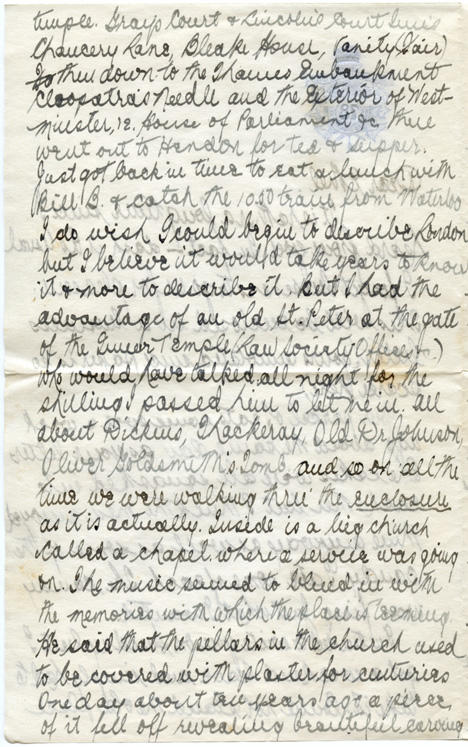 temple. Grays Court & Lincoln's Court Inn's
Chancery Lane, Bleake House, (Vanity Fair)
then down to the Thames Embankment
Cleopatra's Needle and the Exterior of West-
minister, House of Parliament &c then
went out to Hendon for tea & supper.
Just got back in time to eat a lunch with
Bill B. & catch the 10.50 train from Waterloo
I do wish I could begin to describe London
but I believe it would take years to know
it & more to describe it but I had the
advantage of an old St. Peter at the gate
of the Inner Temple Law Society Offices )
who would have talked all night for the
shilling I passed him to let me in. all
about Dickins, Thackeray, Old Dr Johnson,
Oliver Goldsmith's Tomb, and so on all the
time we were walking thru' the enclosure
as it is actually. Inside is a big church
called a chapel where a service was going
on. The music seemed to blend in with
the memories with which the place is teeming
He said that the pillars in the church used
to be covered with plaster for centuries
One day about ten years ago a piece
of it fell off revealing beautiful carving